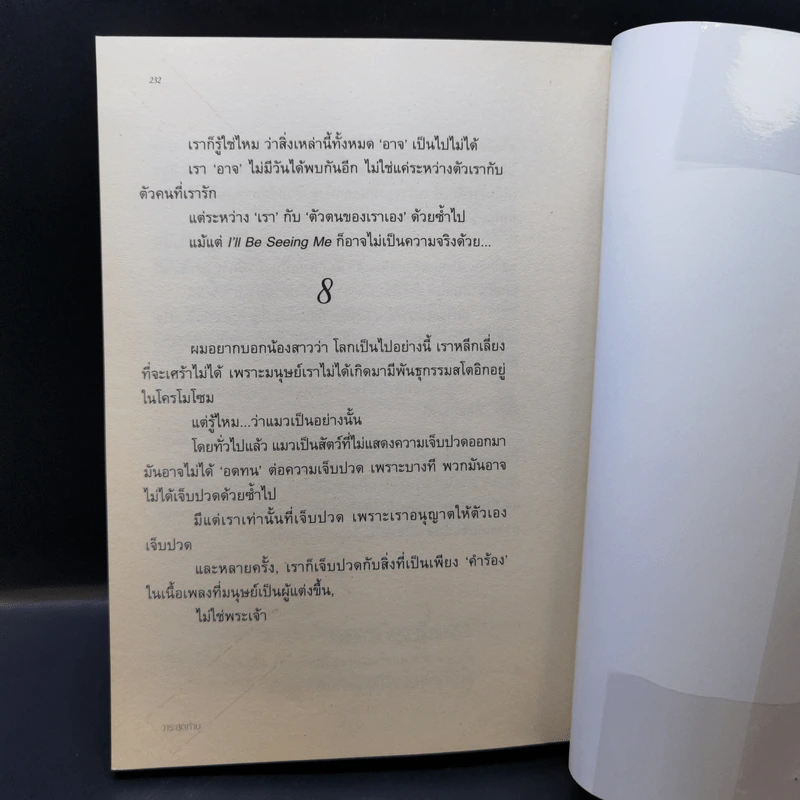 232
เราก็รู้ใช่ไหม ว่าสิ่งเหล่านี้ทั้งหมด ‘อาจ’ เป็นไปไม่ได้
เรา ‘อาจ’ ไม่มีวันได้พบกันอีก ไม่ใช่แค่ระหว่างตัวเรากับ
ตัวคนที่เรารัก
แต่ระหว่าง ‘เรา’ กับ ‘ตัวตนของเราเอง’ ด้วยซ้ำไป
แม้แต่ I’ll Be Seeing Me ก็อาจไม่เป็นความจริงด้วย...
8
ผมอยากบอกน้องสาวว่า โลกเป็นไปอย่างนี้ เราหลีกเลี่ยง
ที่จะเศร้าไม่ได้ เพราะมนุษย์เราไม่ได้เกิดมามีพันธุกรรมสโตอิกอยู่
ในโครโมโซม
แต่รู้ไหม...ว่าแมวเป็นอย่างนั้น
โดยทั่วไปแล้ว แมวเป็นสัตว์ที่ไม่แสดงความเจ็บปวดออกมา
มันอาจไม่ได้ ‘อดทน’ ต่อความเจ็บปวด เพราะบางที พวกมันอาจ
ไม่ได้เจ็บปวดด้วยซ้ำไป
มีแต่เราเท่านั้นที่เจ็บปวด เพราะเราอนุญาตให้ตัวเอง
เจ็บปวด
และหลายครั้ง, เราก็เจ็บปวดกับสิ่งที่เป็นเพียง ‘คำร้อง’
ในเนื้อเพลงที่มนุษย์เป็นผู้แต่งขึ้น,
ไม่ใช่พระเจ้า
วาระสุดท้าย